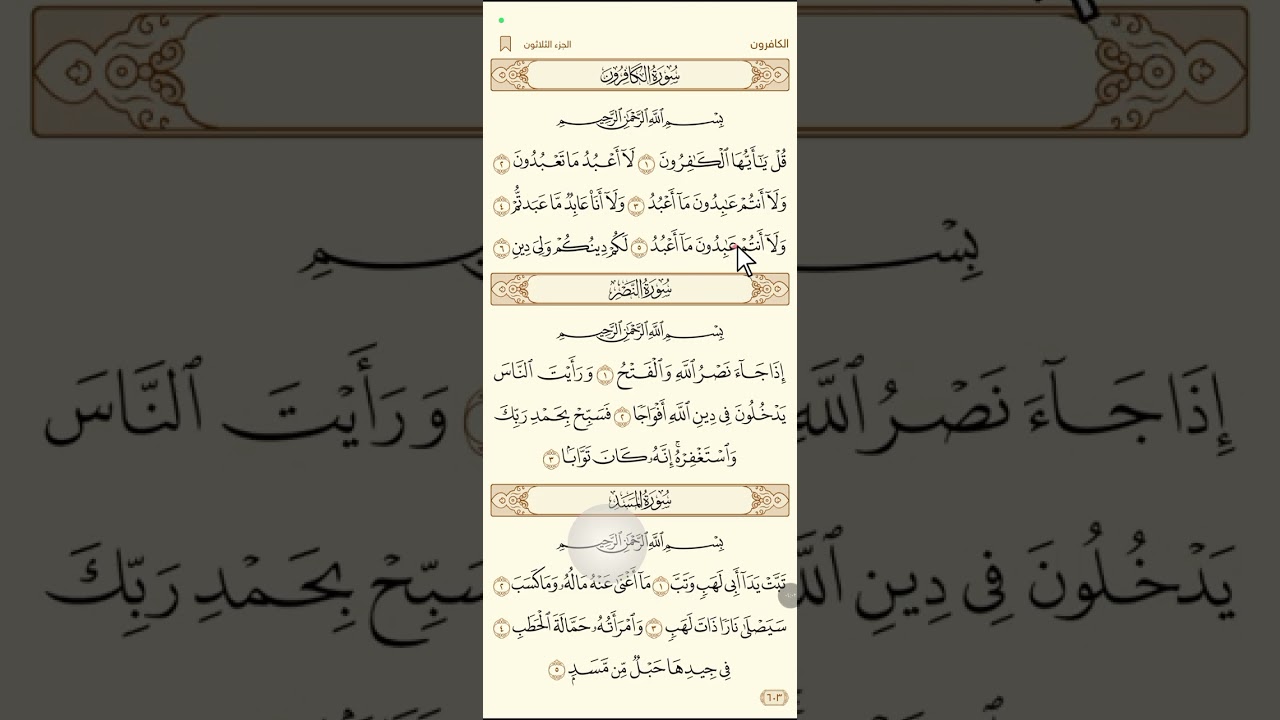 الكافرون
الجزء الثلاثون
سُورَةُ الكَافِرُونَ
بِسْمِ ٱللَّهِ ٱلرَّحْمَٰنِ ٱلرَّحِيمِ
قُلْ يَٰٓأَيُّهَا ٱلْكَٰفِرُونَ ١ لَآ أَعْبُدُ مَا تَعْبُدُونَ ٢
وَلَآ أَنتُمْ عَٰبِدُونَ مَآ أَعْبُدُ ٣ وَلَآ أَنَا۠ عَابِدٌ مَّا عَبَدتُّمْ ٤
وَلَآ أَنتُمْ عَٰبِدُونَ مَآ أَعْبُدُ ٥ لَكُمْ دِينُكُمْ وَلِىَ دِينِ ٦
سُورَةُ النَّصْرِ
بِسْمِ ٱللَّهِ ٱلرَّحْمَٰنِ ٱلرَّحِيمِ
إِذَا جَآءَ نَصْرُ ٱللَّهِ وَٱلْفَتْحُ ١ وَرَأَيْتَ ٱلنَّاسَ
يَدْخُلُونَ فِى دِينِ ٱللَّهِ أَفْوَاجًا ٢ فَسَبِّحْ بِحَمْدِ رَبِّكَ
وَٱسْتَغْفِرْهُ ۚ إِنَّهُۥ كَانَ تَوَّابًۢا ٣
سُورَةُ المَسَدِ
بِسْمِ ٱللَّهِ ٱلرَّحْمَٰنِ ٱلرَّحِيمِ
تَبَّتْ يَدَآ أَبِى لَهَبٍ وَتَبَّ ١ مَآ أَغْنَىٰ عَنْهُ مَالُهُۥ وَمَا كَسَبَ ٢
سَيَصْلَىٰ نَارًا ذَاتَ لَهَبٍ ٣ وَٱمْرَأَتُهُۥ حَمَّالَةَ ٱلْحَطَبِ ٤
فِى جِيدِهَا حَبْلٌ مِّن مَّسَدٍۭ ٥
٦٠٣